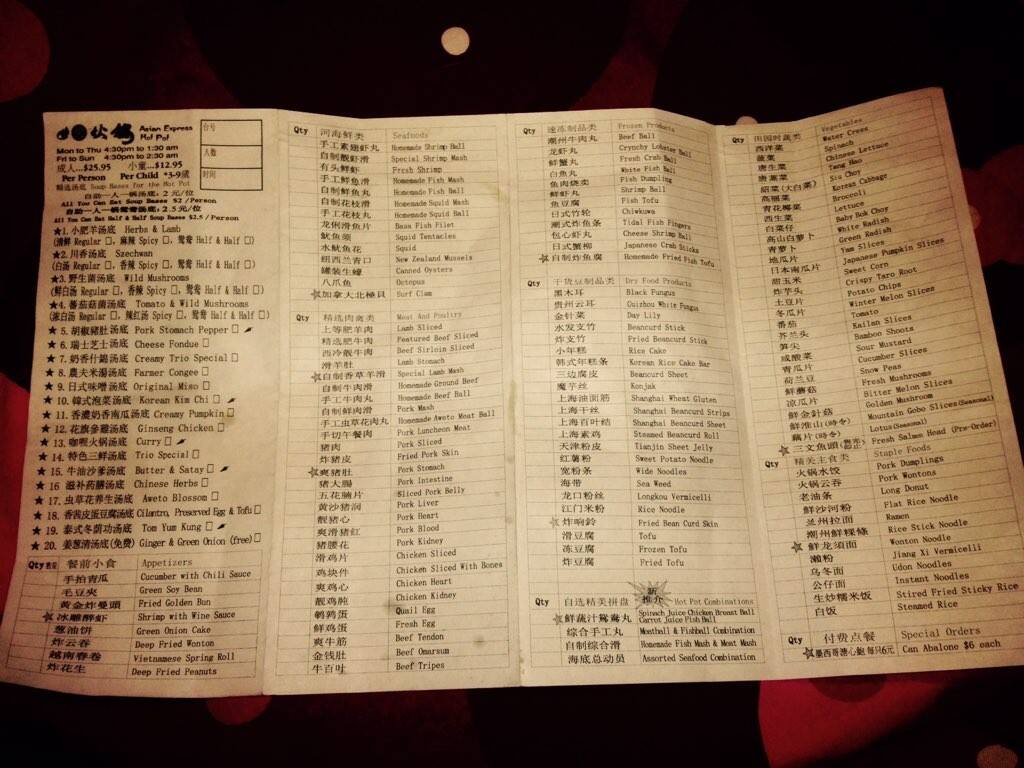 伙鍋 Asian Express Hot Pot
台号
人数
时间
Mon to Thu 4:30pm to 1:30 am
Fri to Sun 4:30pm to 2:30 am
成人...$25.95 小童...$12.95
Per Person Per Child *3-9歲
精选汤底 Soup Bases for the Hot Pot
自助一人一锅汤底, 2 元/位
All You Can Eat Soup Bases $2 /Person
自助一人一锅鸳鸯汤底, 2.5 元/位
All You Can Eat Half & Half Soup Bases $2.5 /Person
★1. 小肥羊汤底 Herbs & Lamb
(清鲜 Regular □, 麻辣 Spicy □, 鸳鸯 Half & Half □)
★2. 川香汤底 Szechwan
(白汤 Regular □, 香辣 Spicy □, 鸳鸯 Half & Half □)
★3. 野生菌汤底 Wild Mushrooms
(鲜白汤 Regular □, 香辣 Spicy □, 鸳鸯 Half & Half □)
★4. 蕃茄菇菌汤底 Tomato & Wild Mushrooms
(浓白汤 Regular □, 辣红汤 Spicy □, 鸳鸯 Half & Half □)
★ 5. 胡椒豬肚汤底 Pork Stomach Pepper □
★ 6. 瑞士芝士汤底 Cheese Fondue □
★ 7. 奶香什錦汤底 Creamy Trio Special □
★ 8. 農夫米湯汤底 Farmer Congee □
★ 9. 日式味噌汤底 Original Miso □
★ 10. 韓式泡菜汤底 Korean Kim Chi □
★ 11. 香濃奶香南瓜汤底 Creamy Pumpkin □
★ 12. 花旗參雞汤底 Ginseng Chicken □
★ 13. 咖喱火锅汤底 Curry □
★ 14. 特色三鲜汤底 Trio Special □
★ 15. 牛油沙爹汤底 Butter & Satay □
★ 16 滋补药膳汤底 Chinese Herbs □
★ 17. 虫草花养生汤底 Aweto Blossom □
★ 18. 香茜皮蛋豆腐汤底 Cilantro, Preserved Egg & Tofu □
★ 19. 泰式冬荫功汤底 Tom Yum Kung □
★ 20. 姜葱清汤底(免费) Ginger & Green Onion (free) □
Qty 餐前小食 Appetizers
手拍青瓜 Cucumber with Chili Sauce
毛豆夾 Green Soy Bean
黄金炸曼頭 Fried Golden Bun
☆冰雕醉虾 Shrimp with Wine Sauce
葱油饼 Green Onion Cake
炸云吞 Deep Fried Wonton
越南春卷 Vietnamese Spring Roll
炸花生 Deep Fried Peanuts
Qty 河海鲜类 Seafoods
手工素翅虾丸 Homemade Shrimp Ball
自制靓虾滑 Special Shrimp Mash
有头鲜虾 Fresh Shrimp
手工鲜鱼滑 Homemade Fish Mash
自制鲜鱼丸 Homemade Fish Ball
自制花枝滑 Homemade Squid Mash
手工花枝丸 Homemade Squid Ball
龙俐滑鱼片 Basa Fish Filet
魷鱼须 Squid Tentacles
水魷鱼花 Squid
纽西兰青口 New Zealand Mussels
罐装生蠔 Canned Oysters
八爪鱼 Octopus
☆加拿大北極貝 Surf Clam
Qty 精选肉禽类 Meat And Poultry
上等肥羊肉 Lamb Sliced
精选肥牛肉 Featured Beef Sliced
西冷靓牛肉 Beef Sirloin Sliced
滑羊肚 Lamb Stomach
☆自制香草羊滑 Special Lamb Mash
自制牛肉滑 Homemade Ground Beef
手工牛肉丸 Homemade Beef Ball
自制鲜肉滑 Pork Mash
手工虫草花肉丸 Homemade Aweto Meat Ball
手切午餐肉 Pork Luncheon Meat
猪肉 Pork Sliced
炸豬皮 Fried Pork Skin
☆爽猪肚 Pork Stomach
猪大腸 Pork Intestine
五花腩片 Sliced Pork Belly
黄沙猪润 Pork Liver
靓豬心 Pork Heart
爽滑猪红 Pork Blood
猪腰花 Pork Kidney
滑鸡片 Chicken Sliced
鸡块件 Chicken Sliced With Bones
爽鸡心 Chicken Heart
靓鸡肫 Chicken Kidney
鹌鹑蛋 Quail Egg
鲜鸡蛋 Fresh Egg
爽牛筋 Beef Tendon
金钱肚 Beef Omarsum
牛百叶 Beef Tripes
Qty 速冻制品类 Frozen Products
潮州牛肉丸 Beef Ball
龙虾丸 Crynchy Lobster Ball
鲜蟹丸 Fresh Crab Ball
白鱼丸 White Fish Ball
鱼肉烧卖 Fish Dumpling
鲜虾丸 Shrimp Ball
鱼豆腐 Fish Tofu
日式竹轮 Chiwkuwa
日式鱼条 Tidal Fish Fingers
包心虾丸 Cheese Shrimp Ball
日式蟹柳 Japanese Crab Sticks
☆自制炸鱼腐 Homemade Fried Fish Tofu
Qty 干货豆制品类 Dry Food Products
黑木耳 Black Fungus
贵州云耳 Guizhou White Fungus
金针菜 Day Lily
水发支竹 Beancurd Stick
炸支竹 Fried Beancurd Stick
小年糕 Rice Cake
韩式年糕条 Korean Rice Cake Bar
三边腐皮 Beancurd Sheet
魔芋丝 Konjak
上海油面筋 Shanghai Wheat Gluten
上海干丝 Shanghai Beancurd Strips
上海百叶结 Shanghai Beancurd Sheet
上海素鸡 Steamed Beancurd Roll
天津粉皮 Tianjin Sheet Jelly
红薯粉 Sweet Potato Noodle
宽粉条 Wide Noodles
海带 Sea Weed
龙口粉丝 Longkou Vermicelli
江门米粉 Rice Noodle
☆炸响鈴 Fried Bean Curd Skin
滑豆腐 Tofu
冻豆腐 Frozen Tofu
炸豆腐 Fried Tofu
新推介
Qty 自选精美拼盘 Hot Pot Combinations
☆鮮蔬汁鴛鴦丸 Spinach Juice Chicken Breast Ball Carrot Juice Fish Ball
综合手工丸 Meatball & Fishball Combination
自制综合滑 Homemade Fish Mash & Meat Mash
海底总动员 Assorted Seafood Combination
Qty 田园时蔬类 Vegetables
西洋菜 Water Cress
菠菜 Spinach
唐生菜 Chinese Lettuce
唐蒿菜 Tung Hao
紹菜(大白菜) Siu Choy
高丽菜 Korean Cabbage
青花椰菜 Broccoli
西生菜 Lettuce
白菜仔 Baby Bok Choy
高山白萝卜 White Radish
青萝卜 Green Radish
地瓜片 Yam Slices
日本南瓜片 Japanese Pumpkin Slices
甜玉米 Sweet Corn
炸芋头 Crispy Taro Root
土豆片 Potato Chips
冬瓜片 Winter Melon Slices
番茄 Tomato
芥兰头 Kailan Slices
笋尖 Bamboo Shoots
咸酸菜 Sour Mustard
青瓜片 Cucumber Slices
荷兰豆 Snow Peas
鲜蘑菇 Fresh Mushrooms
凉瓜片 Bitter Melon Slices
鲜金針菇 Golden Mushroom
鲜淮山(時令) Mountain Gobo Slices(Seasonal)
藕片(時令) Lotus(Seasonal)
☆三文魚頭(預定) Fresh Salmon Head (Pre-Order)
Qty 精美主食类 Staple Foods
火锅水饺 Pork Dumplings
火锅云吞 Pork Wontons
老油条 Long Donut
鲜沙河粉 Flat Rice Noodle
兰州拉面 Ramen
潮州鲜粿條 Rice Stick Noodle
☆鲜龙须面 Wonton Noodle
瀨粉 Jiang Xi Vermicelli
乌冬面 Udon Noodles
公仔面 Instant Noodles
生炒糯米饭 Stired Fried Sticky Rice
白饭 Steamed Rice
Qty 付费点餐 Special Orders
☆墨西哥溏心鮑 每只6元 Can Abalone $6 each